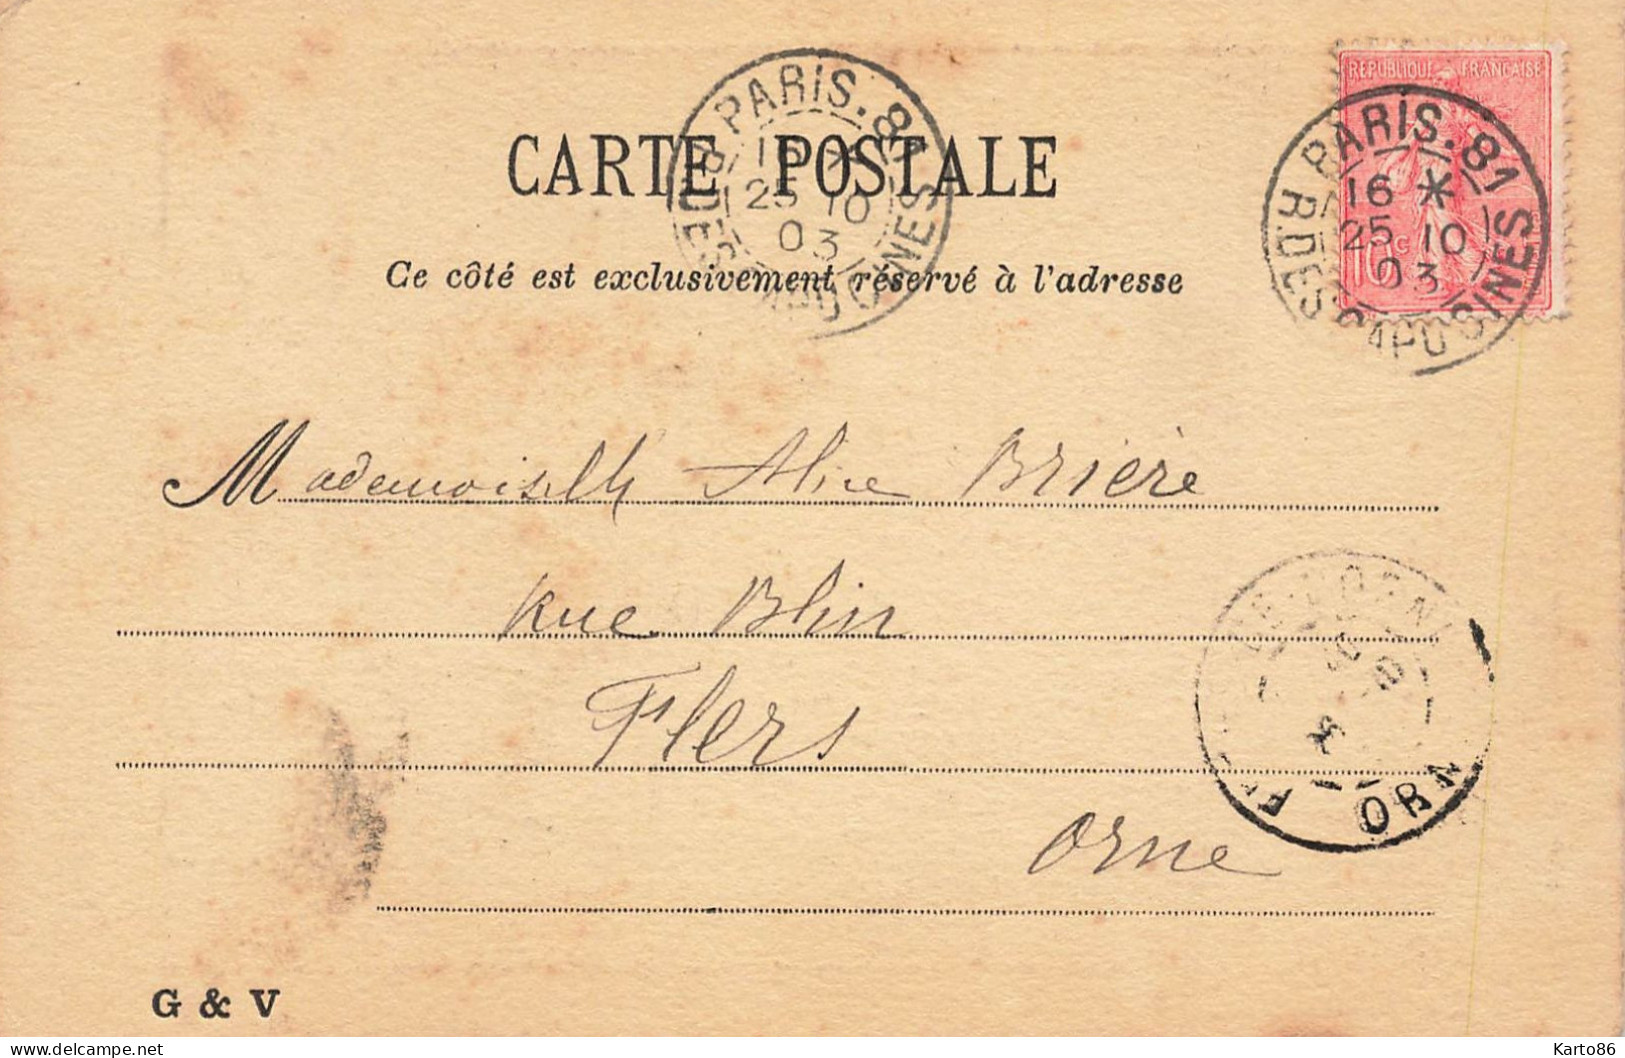 REPUBLIQUE FRANÇAISE
10c
PARIS. 81
16 *
25 10
03
R. DES CAPUCINES
PARIS. 81
25 10
03
R. DES CAPUCINES
CARTE POSTALE
Ce côté est exclusivement réservé à l'adresse
Mademoiselle Alice Brière
Rue Blin
Flers
Orne
ORNE
G & V
www.delcampe.net
Karto86